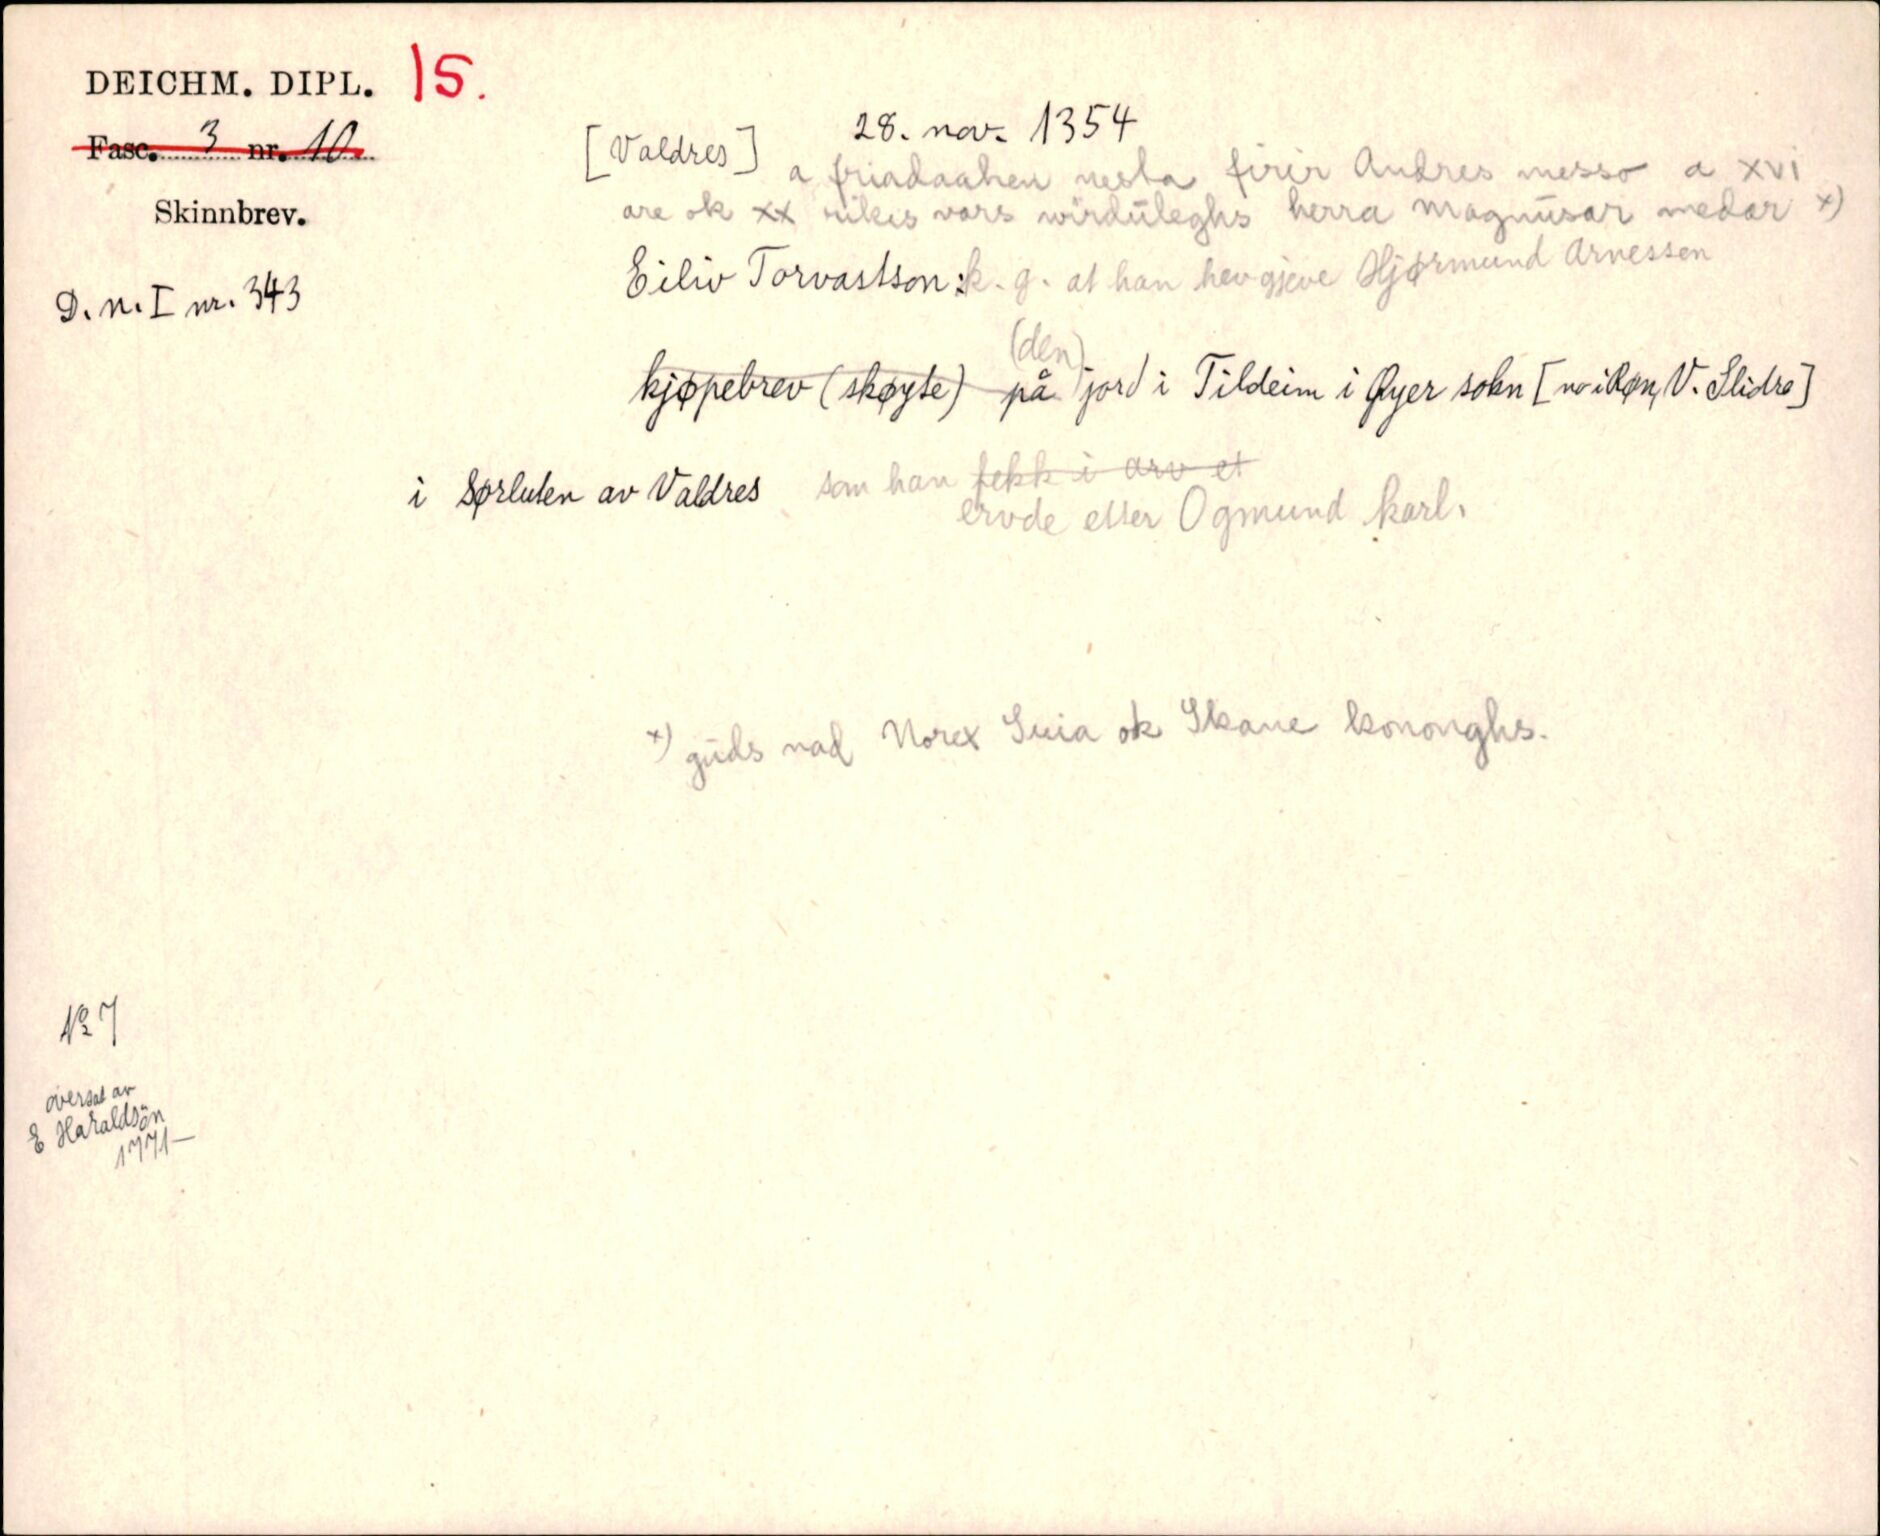 DEICHM. DIPL. 15.
Fasc. 3 nr. 10.
Skinnbrev.
D. N. I nr. 343
[Valdres] 28. nov. 1354
a friadaahen nesta firir Andres messo a xvi
are ok xx rikis vars wirduleghs herra Magnusar medar x)
Eiliv Torvastson: k. g. at han hev gjeve Hjørmund Arnesson
(den)
kjøpebrev (skøyte) på jord i Tildeim i Øyer sokn [no i Røn, V. Slidre]
i Sørluten av Valdres som han fekk i arv et
ervde etter Ogmund karl.
x) guds nad Norex Suia ok Skane kononghs.
No 7
oversat av
E Haraldsön
1771—